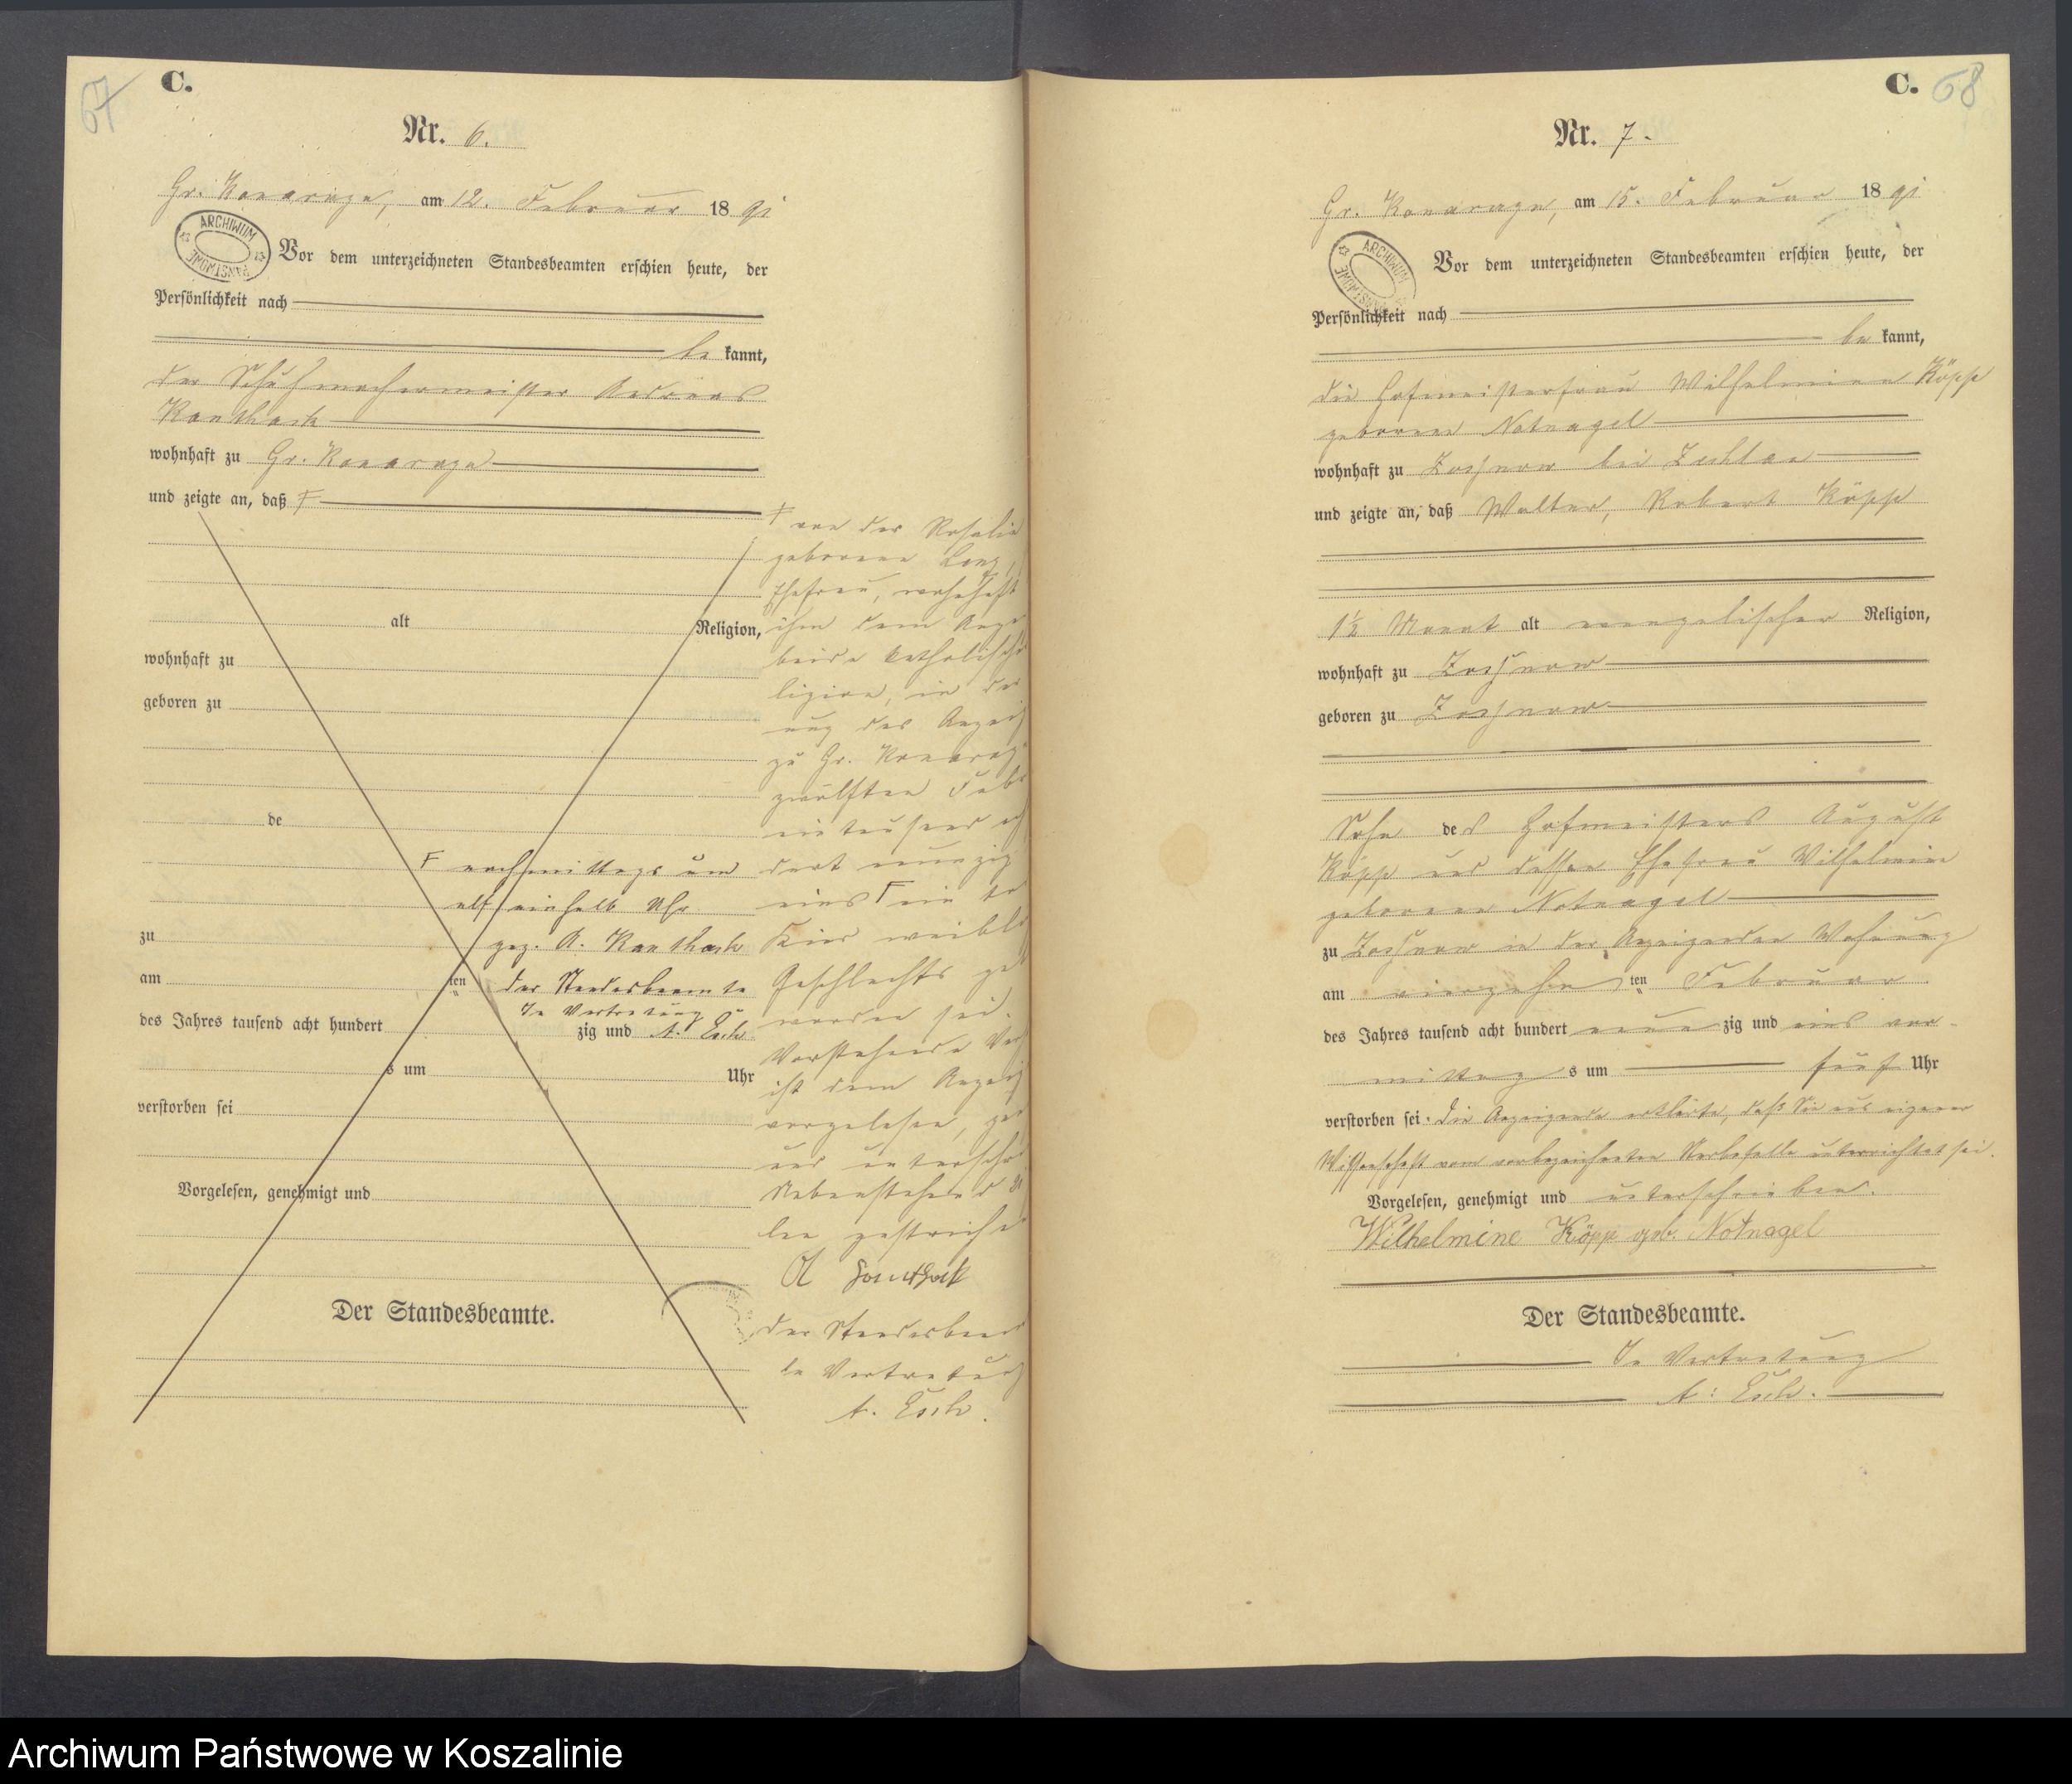 67
C.
Nr. 6.
Gr. Konarzyn, am 12. Februar 1891
ARCHIWUM PAŃSTWOWE
Vor dem unterzeichneten Standesbeamten erschien heute, der
Persönlichkeit nach
be kannt,
der Schuhmachermeister Andreas
Kanthack
wohnhaft zu Gr. Konarzyn
und zeigte an, daß F
alt Religion,
wohnhaft zu
geboren zu
de
zu
am ten
des Jahres tausend acht hundert zig und
s um Uhr
verstorben sei
Vorgelesen, genehmigt und
Der Standesbeamte.
F nachmittags um
elf einhalb Uhr
gez. A. Kanthack
der Standesbeamte
In Vertretung
A. Esch
F von der Rosalie
geborene
Ehefrau, wohnhaft
ihm dem
beide katholische
ligion, in der
ung des
zu Gr. Konarzyn
zwölften
eintausend
dert neunzig
eins F ein
Kind weibl
Geschlechts
worden sei.
Vorstehende
ist dem
vorgelesen,
und
Nebenstehend
len
A Kanthack
der
In Vertretung
A. Esch.
C. 68
Nr. 7.
Gr. Konarzyn, am 15. Februar 1891
ARCHIWUM PAŃSTWOWE
Vor dem unterzeichneten Standesbeamten erschien heute, der
Persönlichkeit nach
be kannt,
die Hofmeisterfrau Wilhelmine Köpp
geborene Notnagel
wohnhaft zu bei
und zeigte an, daß Walter, Robert Köpp
1½ Monat alt evangelischer Religion,
wohnhaft zu
geboren zu
Sohn des Hofmeisters August
Köpp und dessen Ehefrau Wilhelmine
geborene Notnagel
zu in der Anzeigenden Wohnung
am vierzehnten Februar
des Jahres tausend acht hundert neun zig und eins vor-
mittag s um fünf Uhr
verstorben sei. die Anzeigende erklärte, daß Sie aus eigener
Wissenschaft vom vorbezeichneten Sterbefalle unterrichtet sei.
Vorgelesen, genehmigt und unterschrieben.
Wilhelmine Köpp geb. Notnagel
Der Standesbeamte.
In Vertretung
A: Esch.
Archiwum Państwowe w Koszalinie